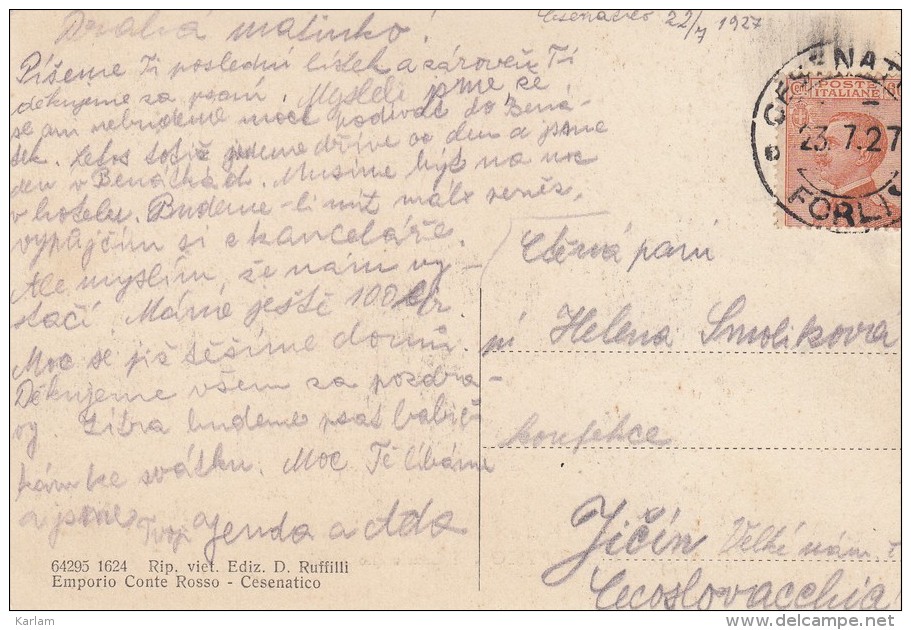 Cesenatico 22/7 1927
Drahá matinko!
Píšeme Ti poslední lístek a zároveň Ti
děkujeme za psaní. Mysleli jsme že
se ani nebudeme moct podívat do Bená-
tek. Letos totiž jedeme dříve o den a jsme
den v Benátkách. Musíme být na noc
v hotelu. Budeme-li mít málo peněz,
vypůjčím si z kanceláře.
Ale myslím, že nám vy-
stačí. Máme ještě 100 lir.
Moc se již těšíme domů.
Děkujeme všem za pozdra-
vy. Zítra budeme psát babič-
kám ke svátku. Moc Tě líbáme
a jsme
Tvoji Jenda a Ada
64295 1624 Rip. viet. Ediz. D. Ruffilli
Emporio Conte Rosso - Cesenatico
POSTE
ITALIANE
CESENAT
23.7.27
FORLI
Ctěná paní
pí Helena Smolíková
konfekce
Jičín Velké nám
Cecoslovacchia